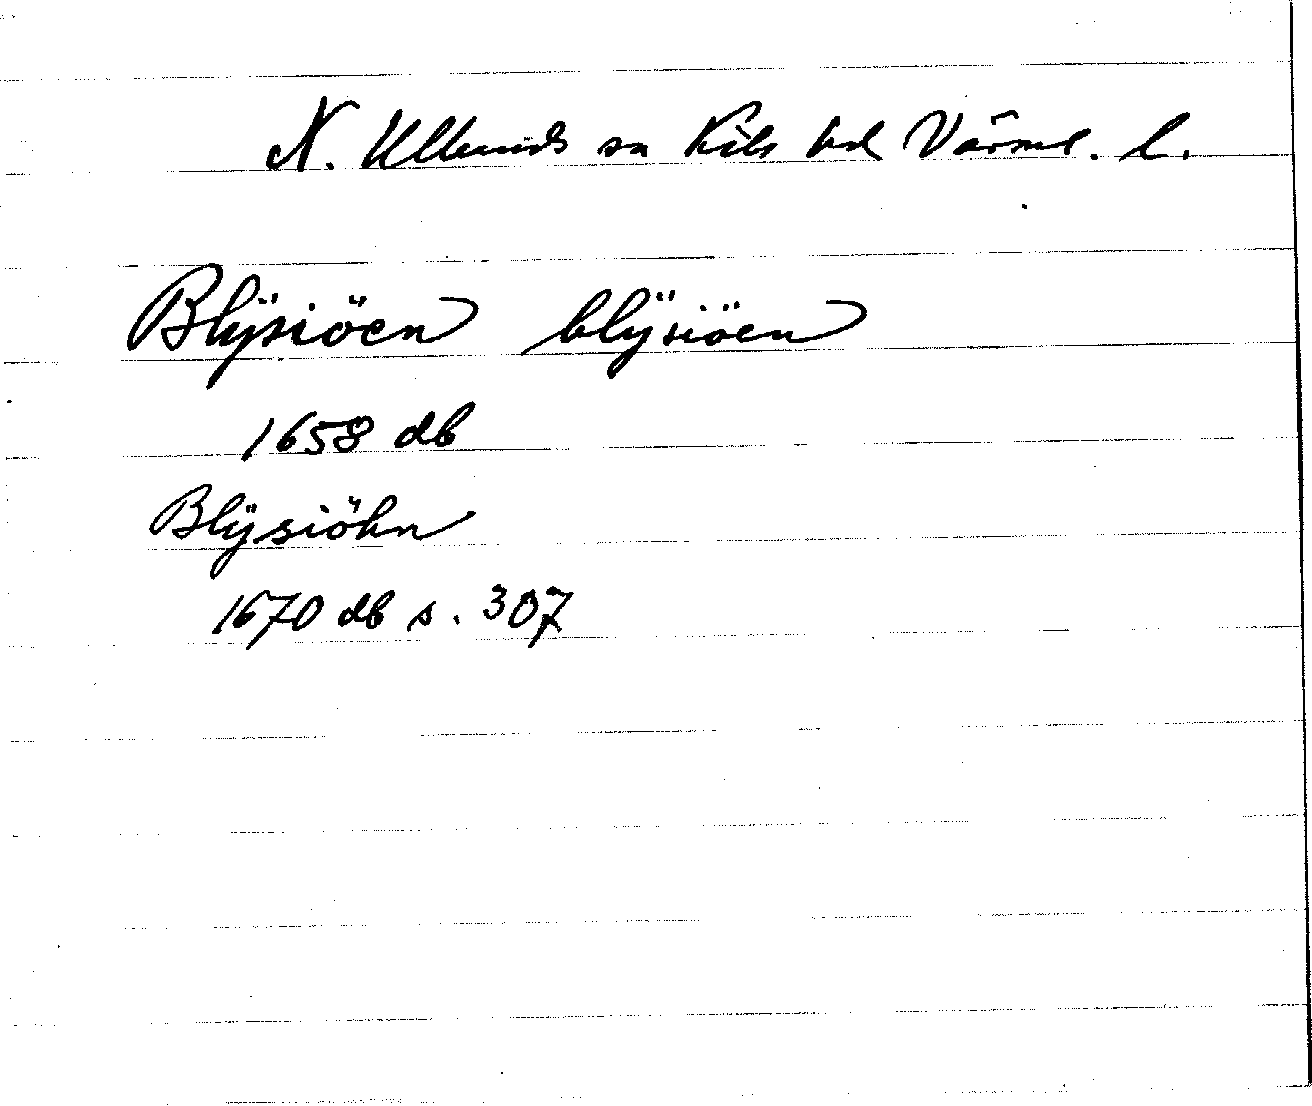 N. Ulleruds sn Kils hd Värml. l.
Blÿsiöen blÿsiöen
1658 db
Blÿsiöhn
1670 db s. 307